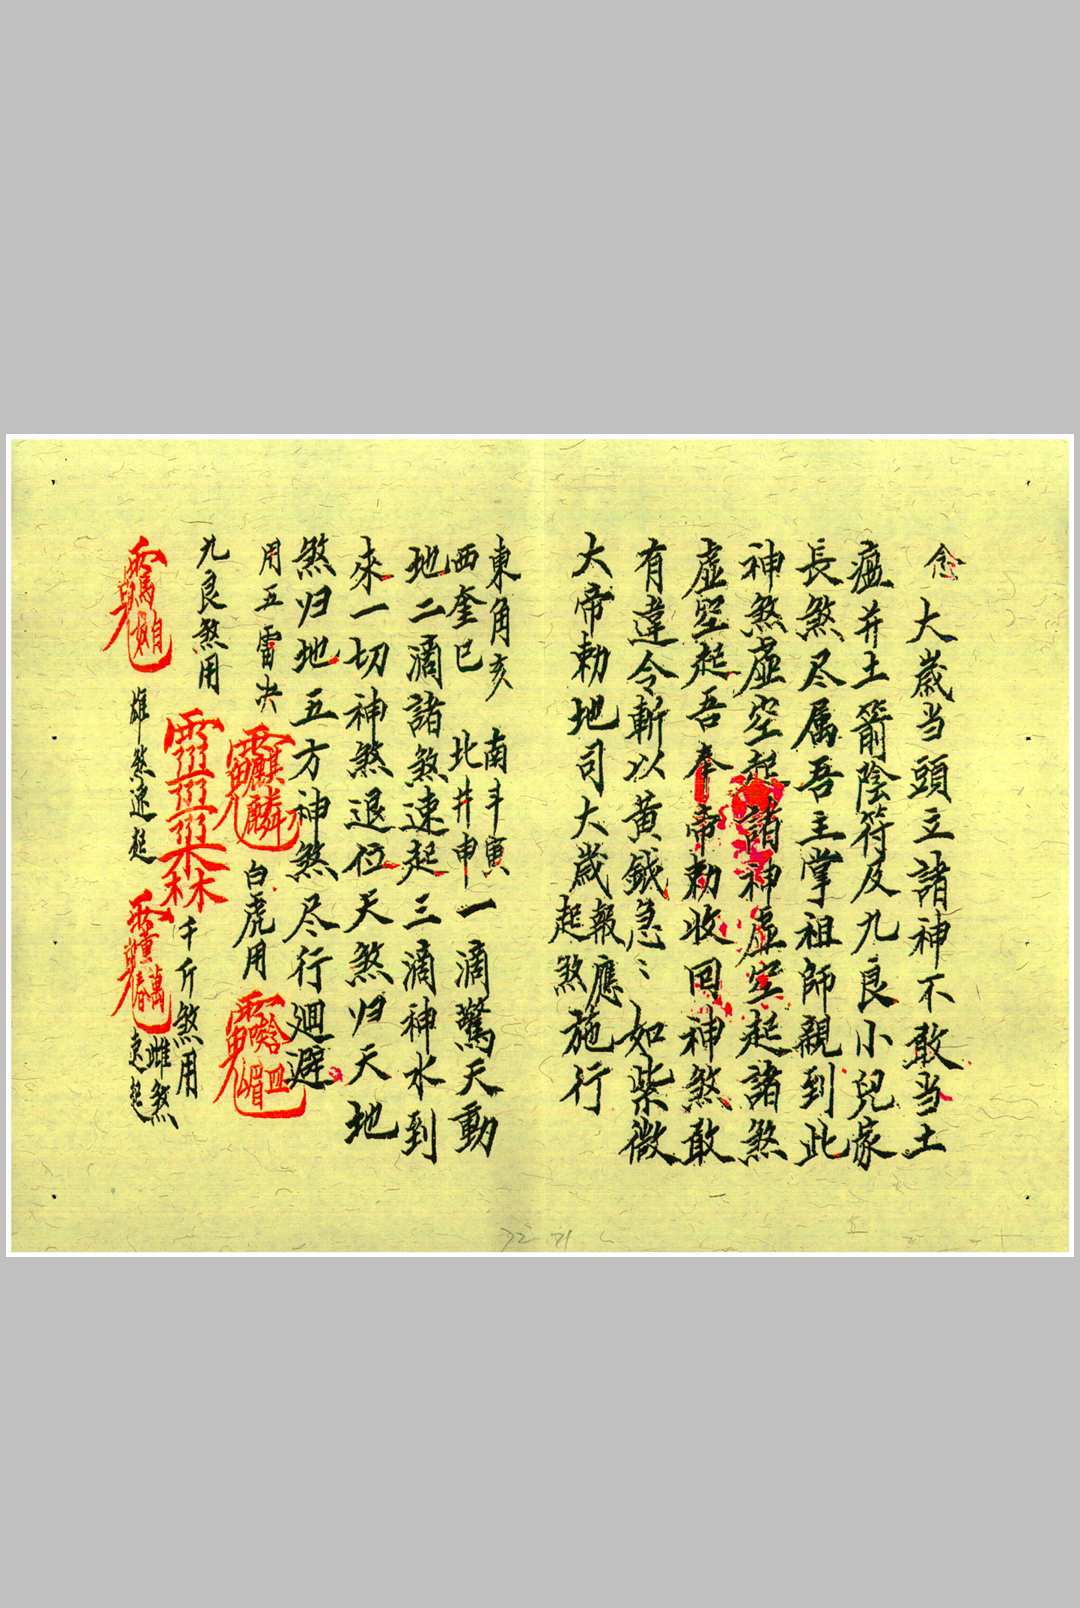 念 大歲当頭立諸神不敢当土
瘟并土箭陰符及九良小兒家
長煞尽属吾主掌祖師親到此
神煞虛空起諸神虛空起諸煞
虛空起吾奉帝勅收回神煞敢
有違令斬以黃鉞急〻如紫微
大帝勅地司大歲報應施行
起煞
東角亥 南斗寅
西奎巳 北井申
一滴驚天動
地二滴諸煞速起三滴神水到
來一切神煞退位天煞归天地
煞归地五方神煞尽行迴避
用五雷决
白虎用
九良煞用
千斤煞用
雄煞速起
雌煞
速起